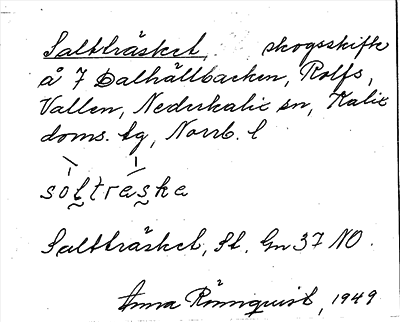 Saltträsket, skogsskifte
å 7 Dalhällbacken, Rolfs,
Vallen, Nederkalix sn, Kalix
doms. tg, Norrb. l
söltraska
Saltträsket, St. Gn 37 NO.
Anna Rönnquist, 1949